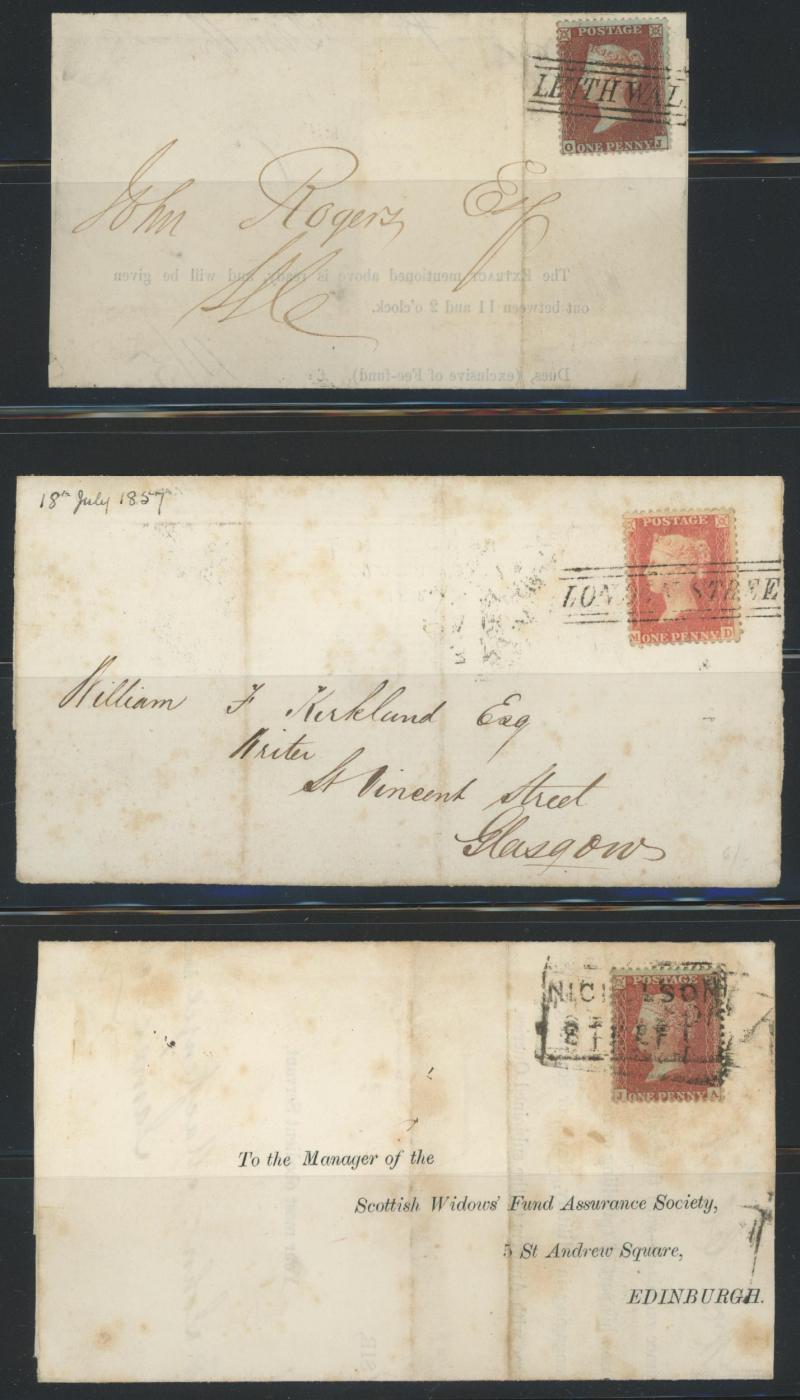 POSTAGE
LEITH WAL
O J
ONE PENNY
John Rogers Esq
The Extract mentioned above is ready and will be given
out between 11 and 2 o'clock.
Dues, (exclusive of Fee-fund) £ :
18th July 1857
POSTAGE
LONDON STREE
M D
ONE PENNY
William F Kirkland Esq
Writer
St Vincent Street
Glasgow
6/-
NICHOLSON
STREET
J A
ONE PENNY
To the Manager of the
Scottish Widows' Fund Assurance Society,
5 St Andrew Square,
EDINBURGH.
SIR,